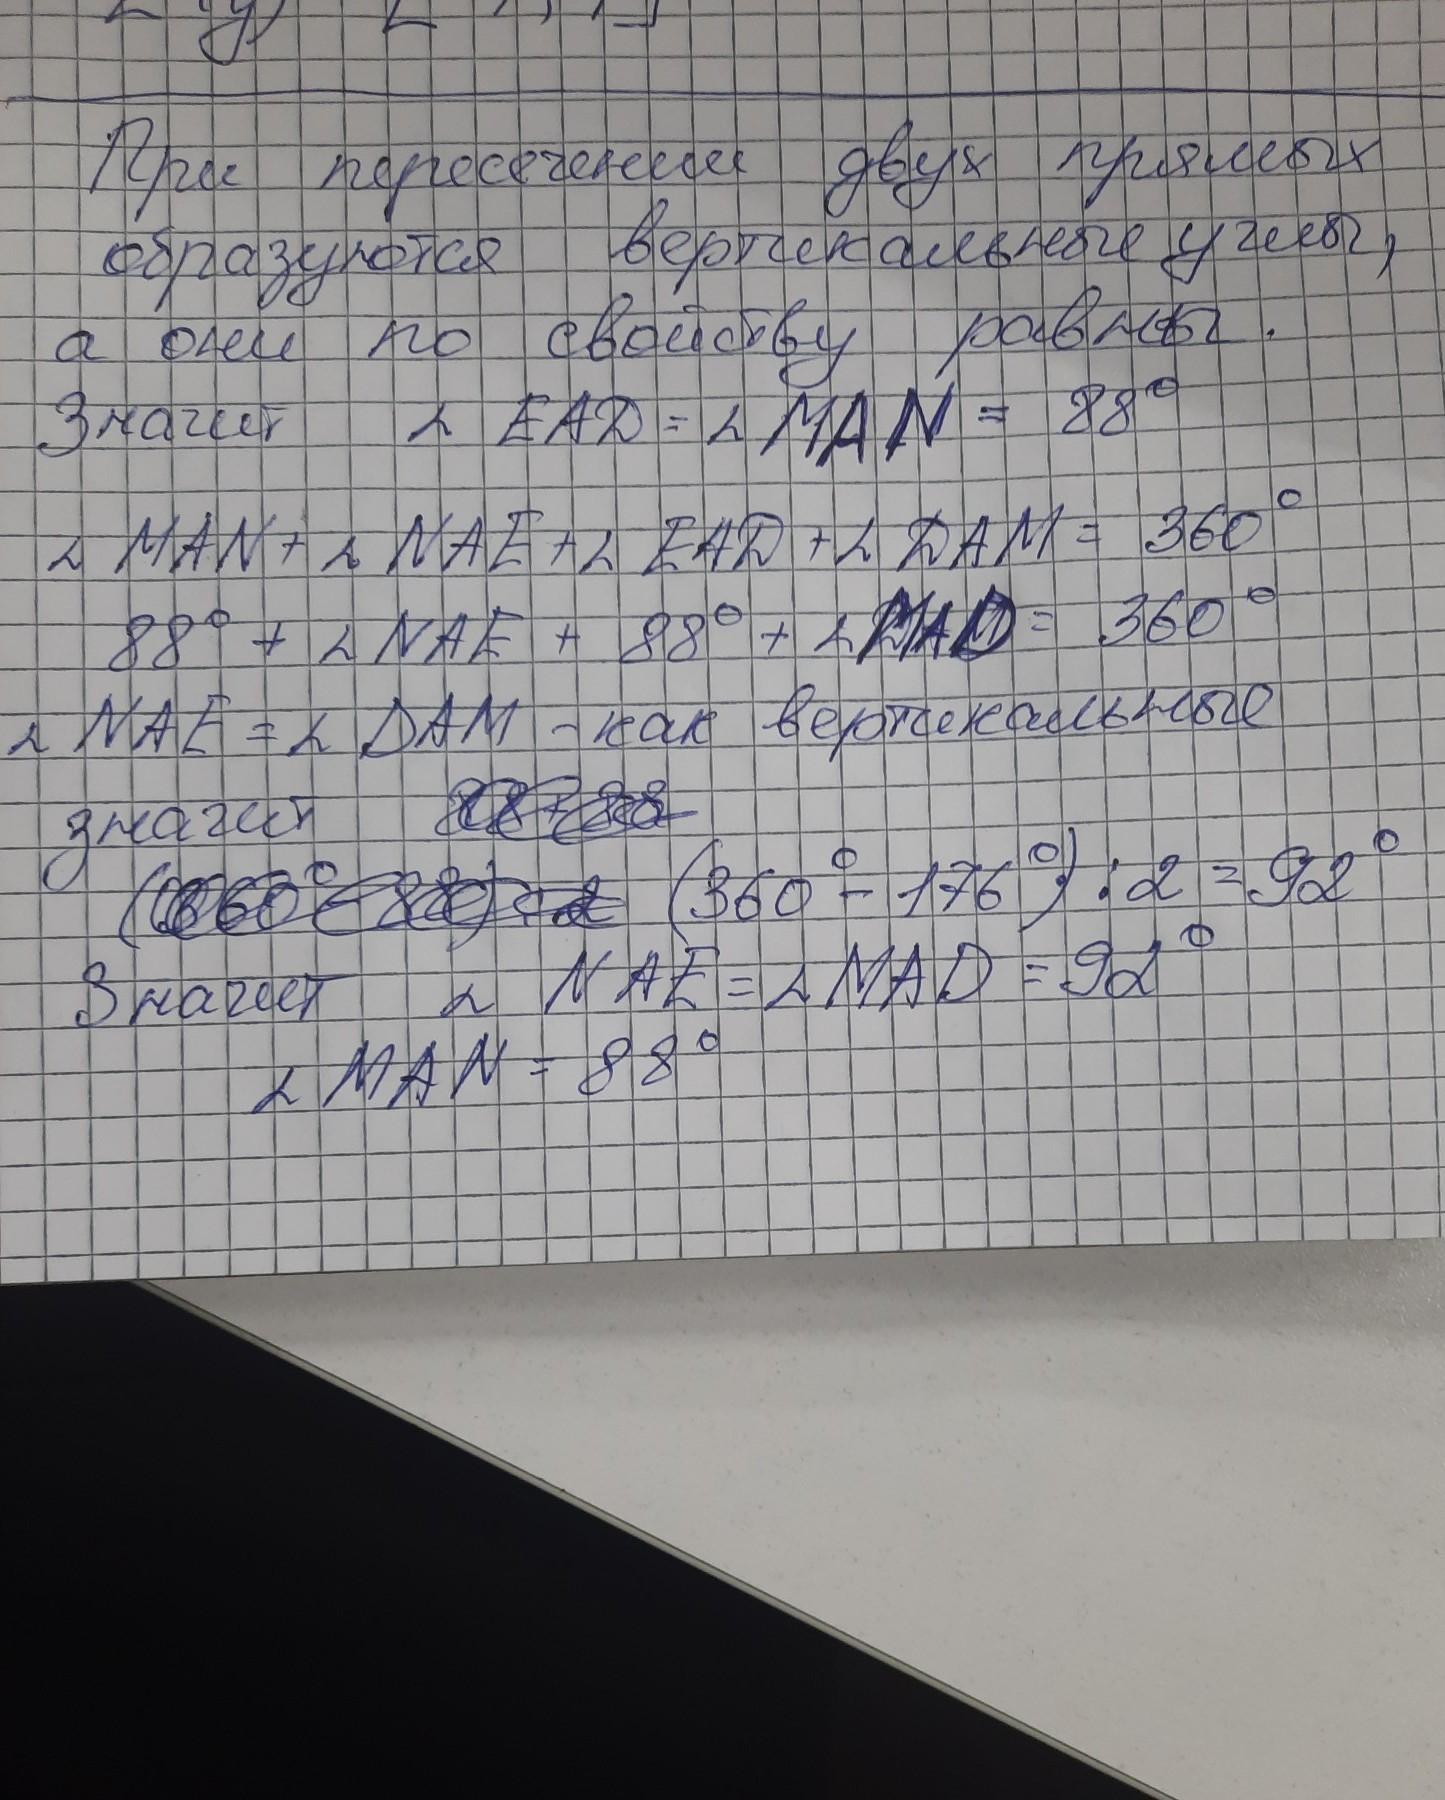 При пересечении двух прямых
образуются вертикальные углы,
а они по свойству равны.
Значит ∠ EAD = ∠ MAN = 88°
∠ MAN + ∠ NAE + ∠ EAD + ∠ DAM = 360°
88° + ∠ NAE + 88° + ∠ MAD = 360°
∠ NAE = ∠ DAM - как вертикальные
значит
(360° - 176°) : 2 = 92°
Значит ∠ NAE = ∠ MAD = 92°
∠ MAN = 88°